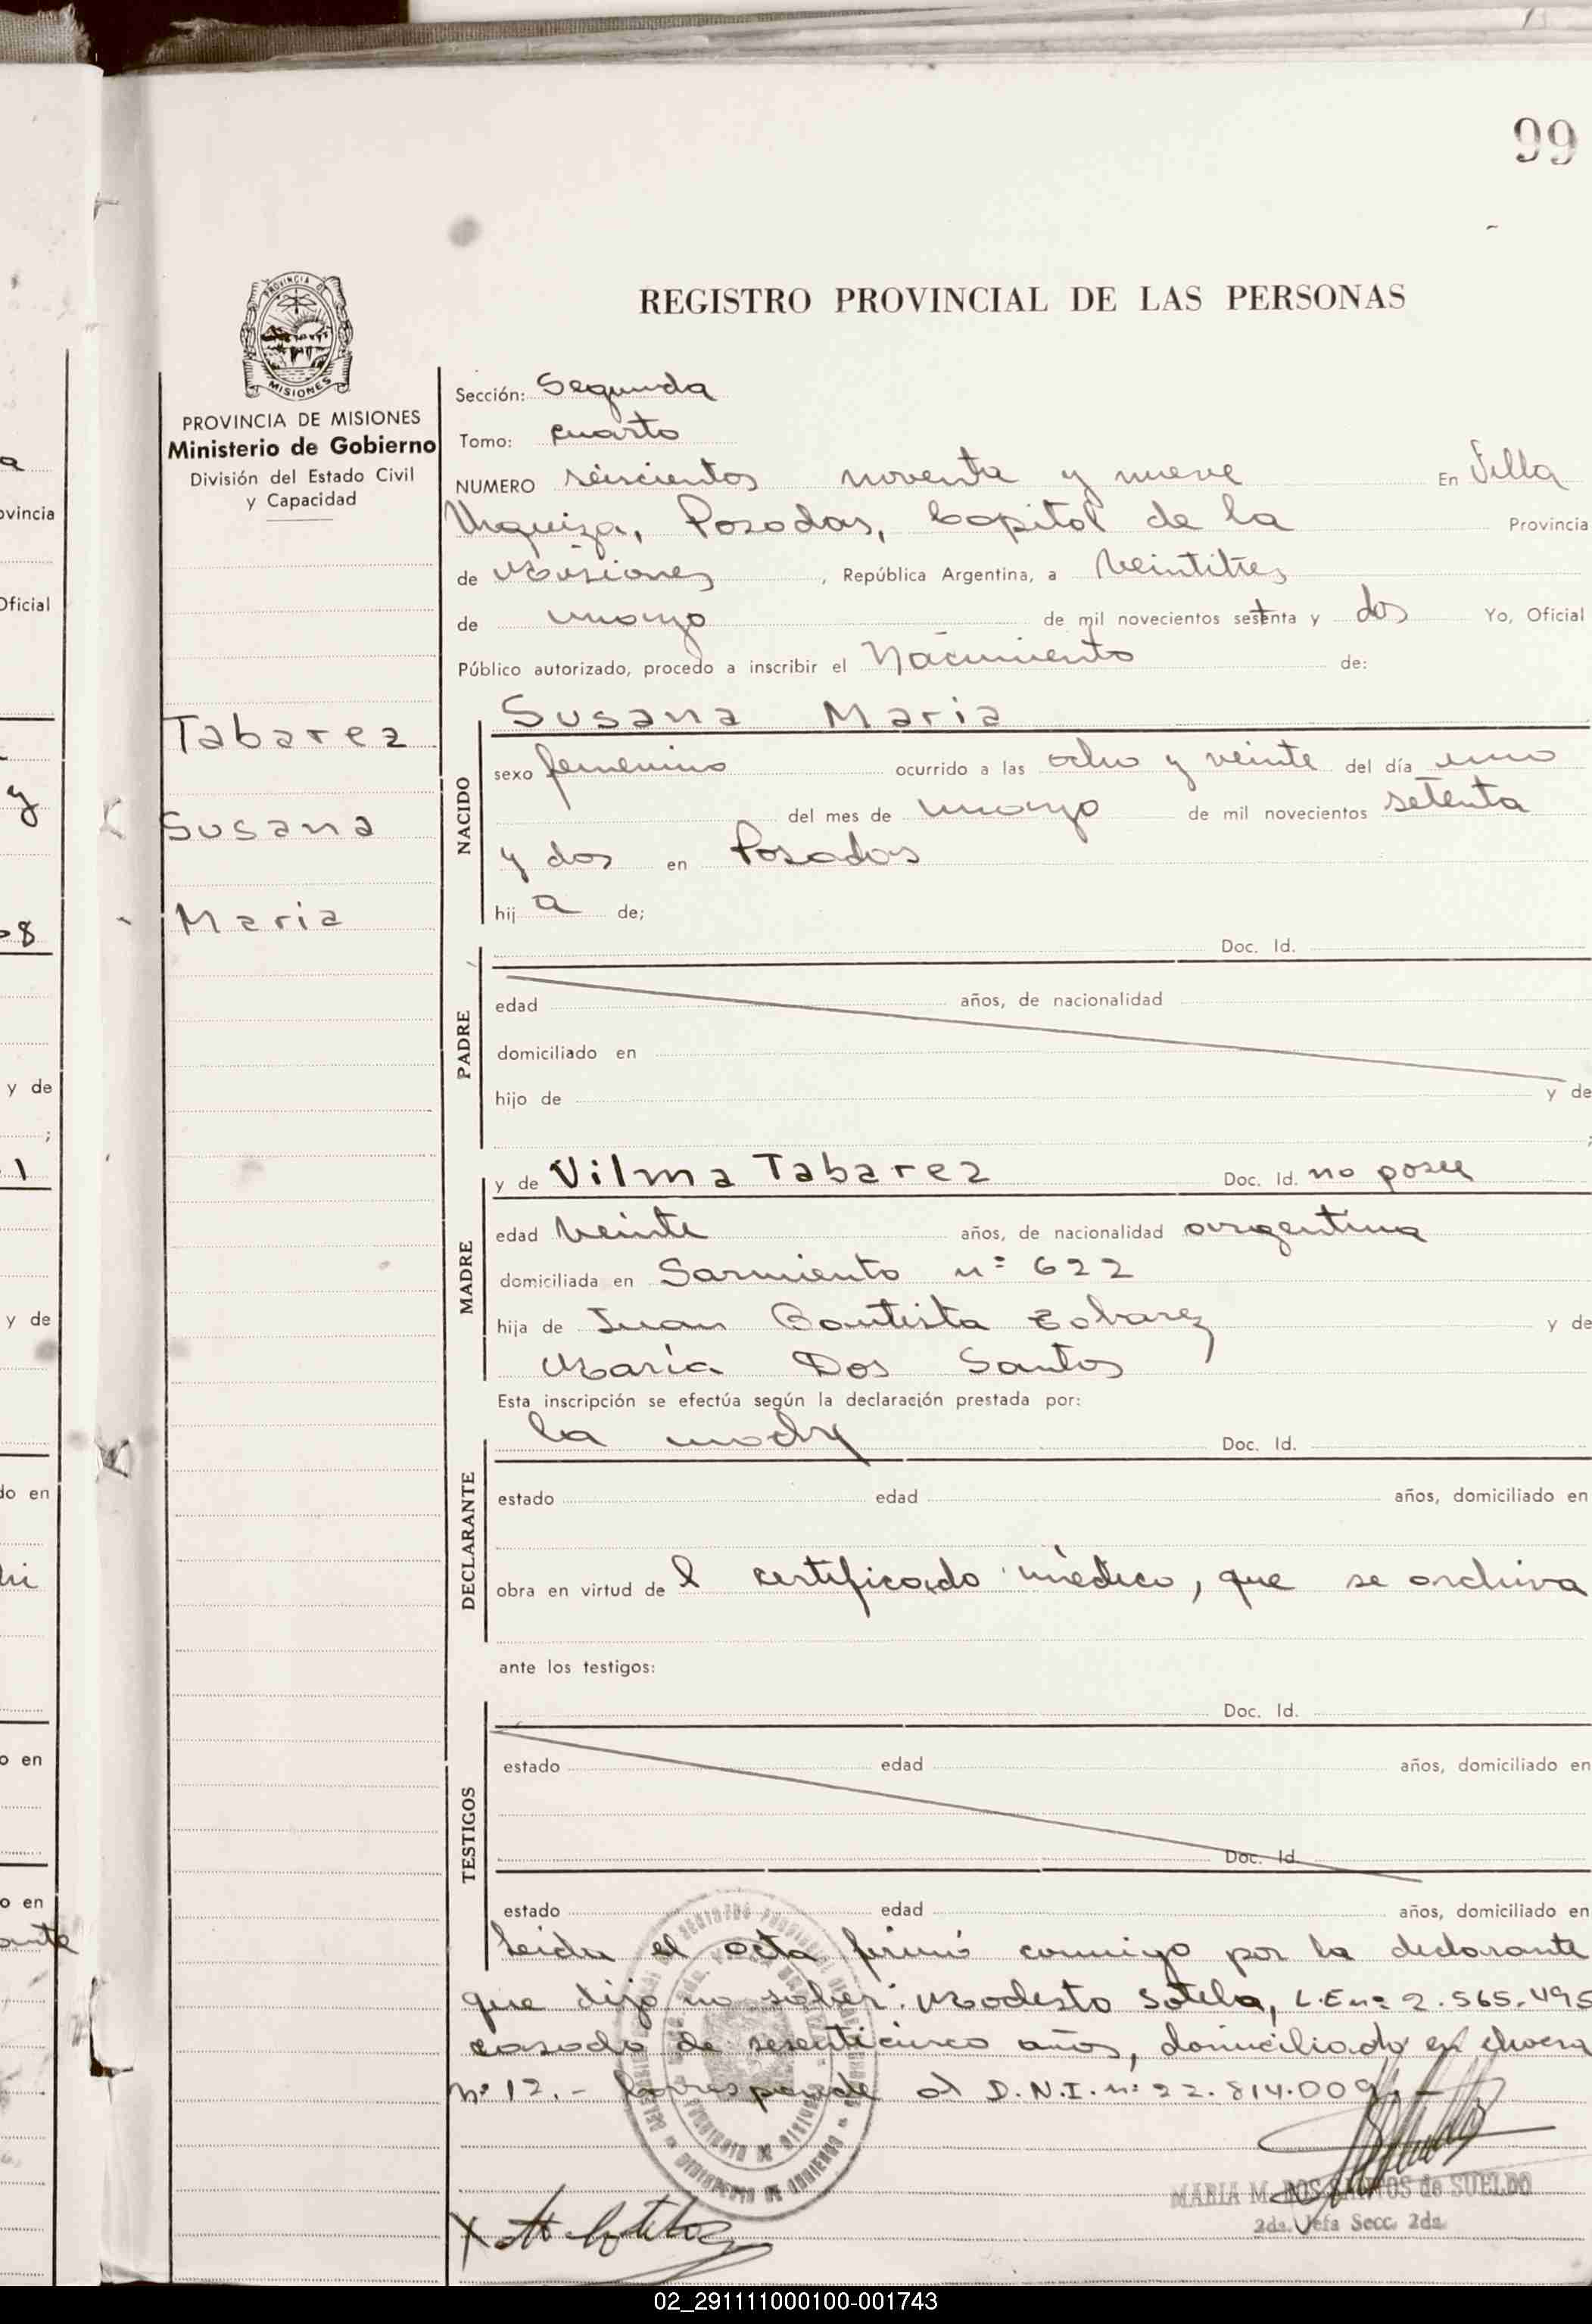 99
REGISTRO PROVINCIAL DE LAS PERSONAS
PROVINCIA DE
MISIONES
PROVINCIA DE MISIONES
Ministerio de Gobierno
División del Estado Civil
y Capacidad
Tabarez
Susana
Maria
Sección: Segunda
Tomo: cuarto
NUMERO seiscientos noventa y nueve En Villa
Urquiza, Posadas, Capital de la Provincia
de Misiones, República Argentina, a veintitres
de marzo de mil novecientos setenta y dos Yo, Oficial
Público autorizado, procedo a inscribir el Nacimiento de:
NACIDO
Susana Maria
sexo femenino ocurrido a las ocho y veinte del día uno
del mes de marzo de mil novecientos setenta
y dos en Posadas
hij a de;
PADRE
Doc. Id.
edad años, de nacionalidad
domiciliado en
hijo de y de
;
MADRE
y de Vilma Tabarez Doc. Id. no posee
edad veinte años, de nacionalidad argentina
domiciliada en Sarmiento nº 622
hija de Juan Bautista Tabarez y de
María Dos Santos
Esta inscripción se efectúa según la declaración prestada por:
DECLARANTE
la madre Doc. Id.
estado edad años, domiciliado en
obra en virtud de l certificado médico, que se archiva
ante los testigos:
TESTIGOS
Doc. Id.
estado edad años, domiciliado en
Doc. Id.
estado edad años, domiciliado en
Leida el acta firmó conmigo por la declarante
que dijo no saber: Modesto Sotelo, L.E nº 2.565.495
casado de sesenticinco años, domiciliado en chacra
nº 12.- Corresponde al D.N.I. nº 22.814.009.-
MARIA M. DOS SANTOS de SUELDO
2da. Jefa Secc. 2da.
ovincia
Oficial
y
y de
;
y de
do en
o en
o en
02_291111000100-001743